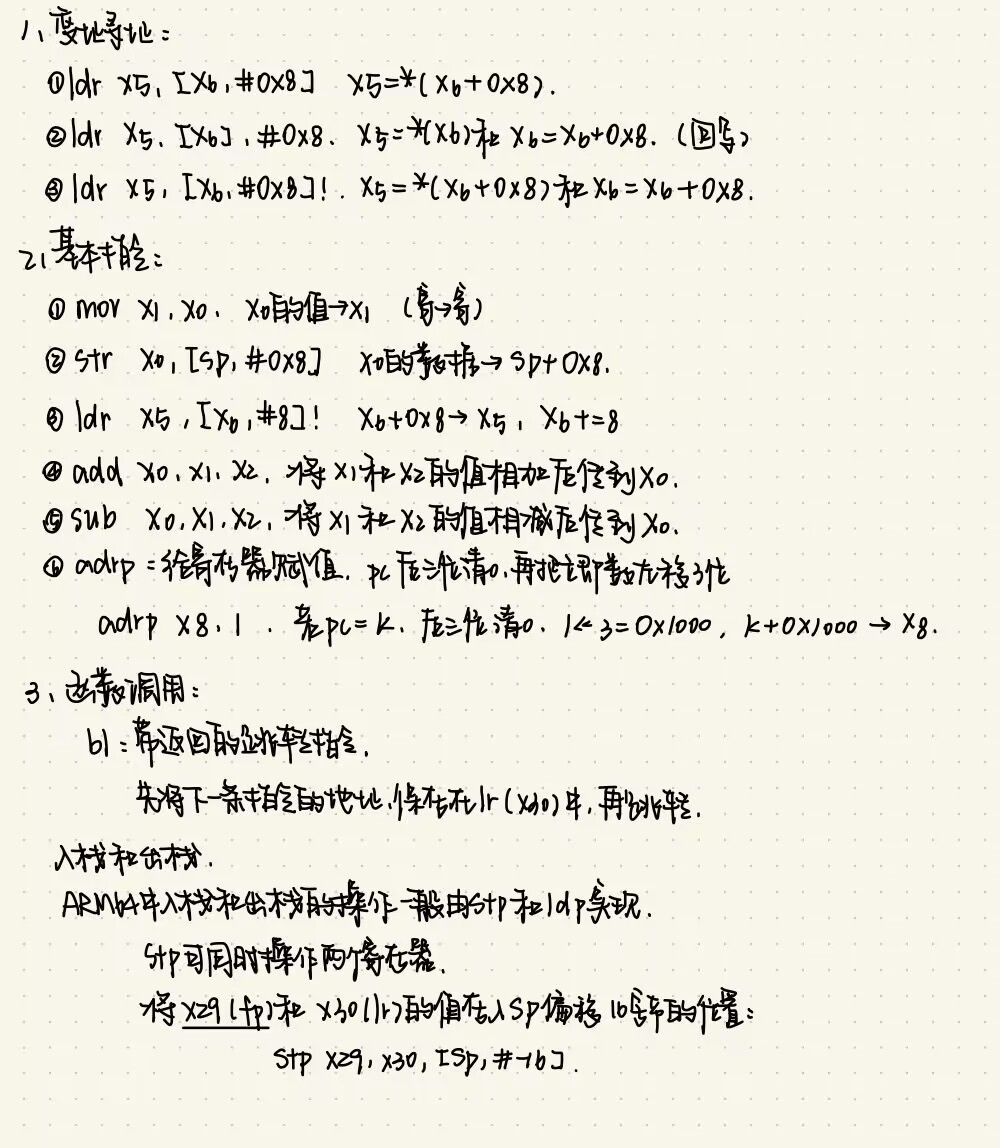 1、变址寻址：
①ldr x5, [x6, #0x8] x5=*(x6+0x8).
②ldr x5, [x6], #0x8. x5=*(x6)和x6=x6+0x8. (回写)
③ldr x5, [x6, #0x8]!. x5=*(x6+0x8)和x6=x6+0x8.
2、基本指令：
① mov x1, x0. x0的值→x1 (寄→寄)
② str x0, [sp, #0x8] x0的数据→sp+0x8.
③ ldr x5, [x6, #8]! x6+0x8→x5, x6+=8
④ add x0, x1, x2, 将x1和x2的值相加后传到x0.
⑤ sub x0, x1, x2, 将x1和x2的值相减后传到x0.
⑥ adrp：给寄存器赋值. pc后三位清0,再把立即数左移3位
adrp x8, 1. 若pc=k. 后三位清0. 1<<3=0x1000, k+0x1000→x8.
3、函数调用：
bl：带返回的跳转指令.
先将下一条指令的地址,保存在lr(x30)中,再跳转.
入栈和出栈.
ARM64中入栈和出栈的操作一般由stp和ldp实现.
stp可同时操作两个寄存器.
将x29(fp)和x30(lr)的值存入sp偏移16字节的位置：
stp x29, x30, [sp, #-16].